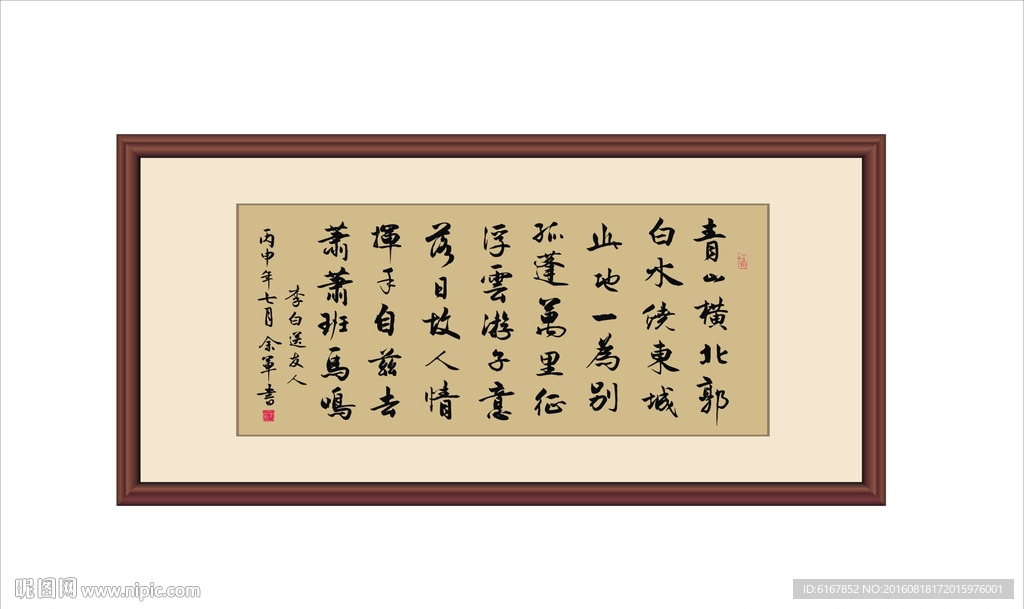 青山橫北郭
白水繞東城
此地一為別
孤蓬萬里征
浮雲游子意
落日故人情
揮手自茲去
蕭蕭班馬鳴
李白送友人
丙申年七月余軍书
昵图网 www.nipic.com
ID:6167852 NO:20160818172015976001